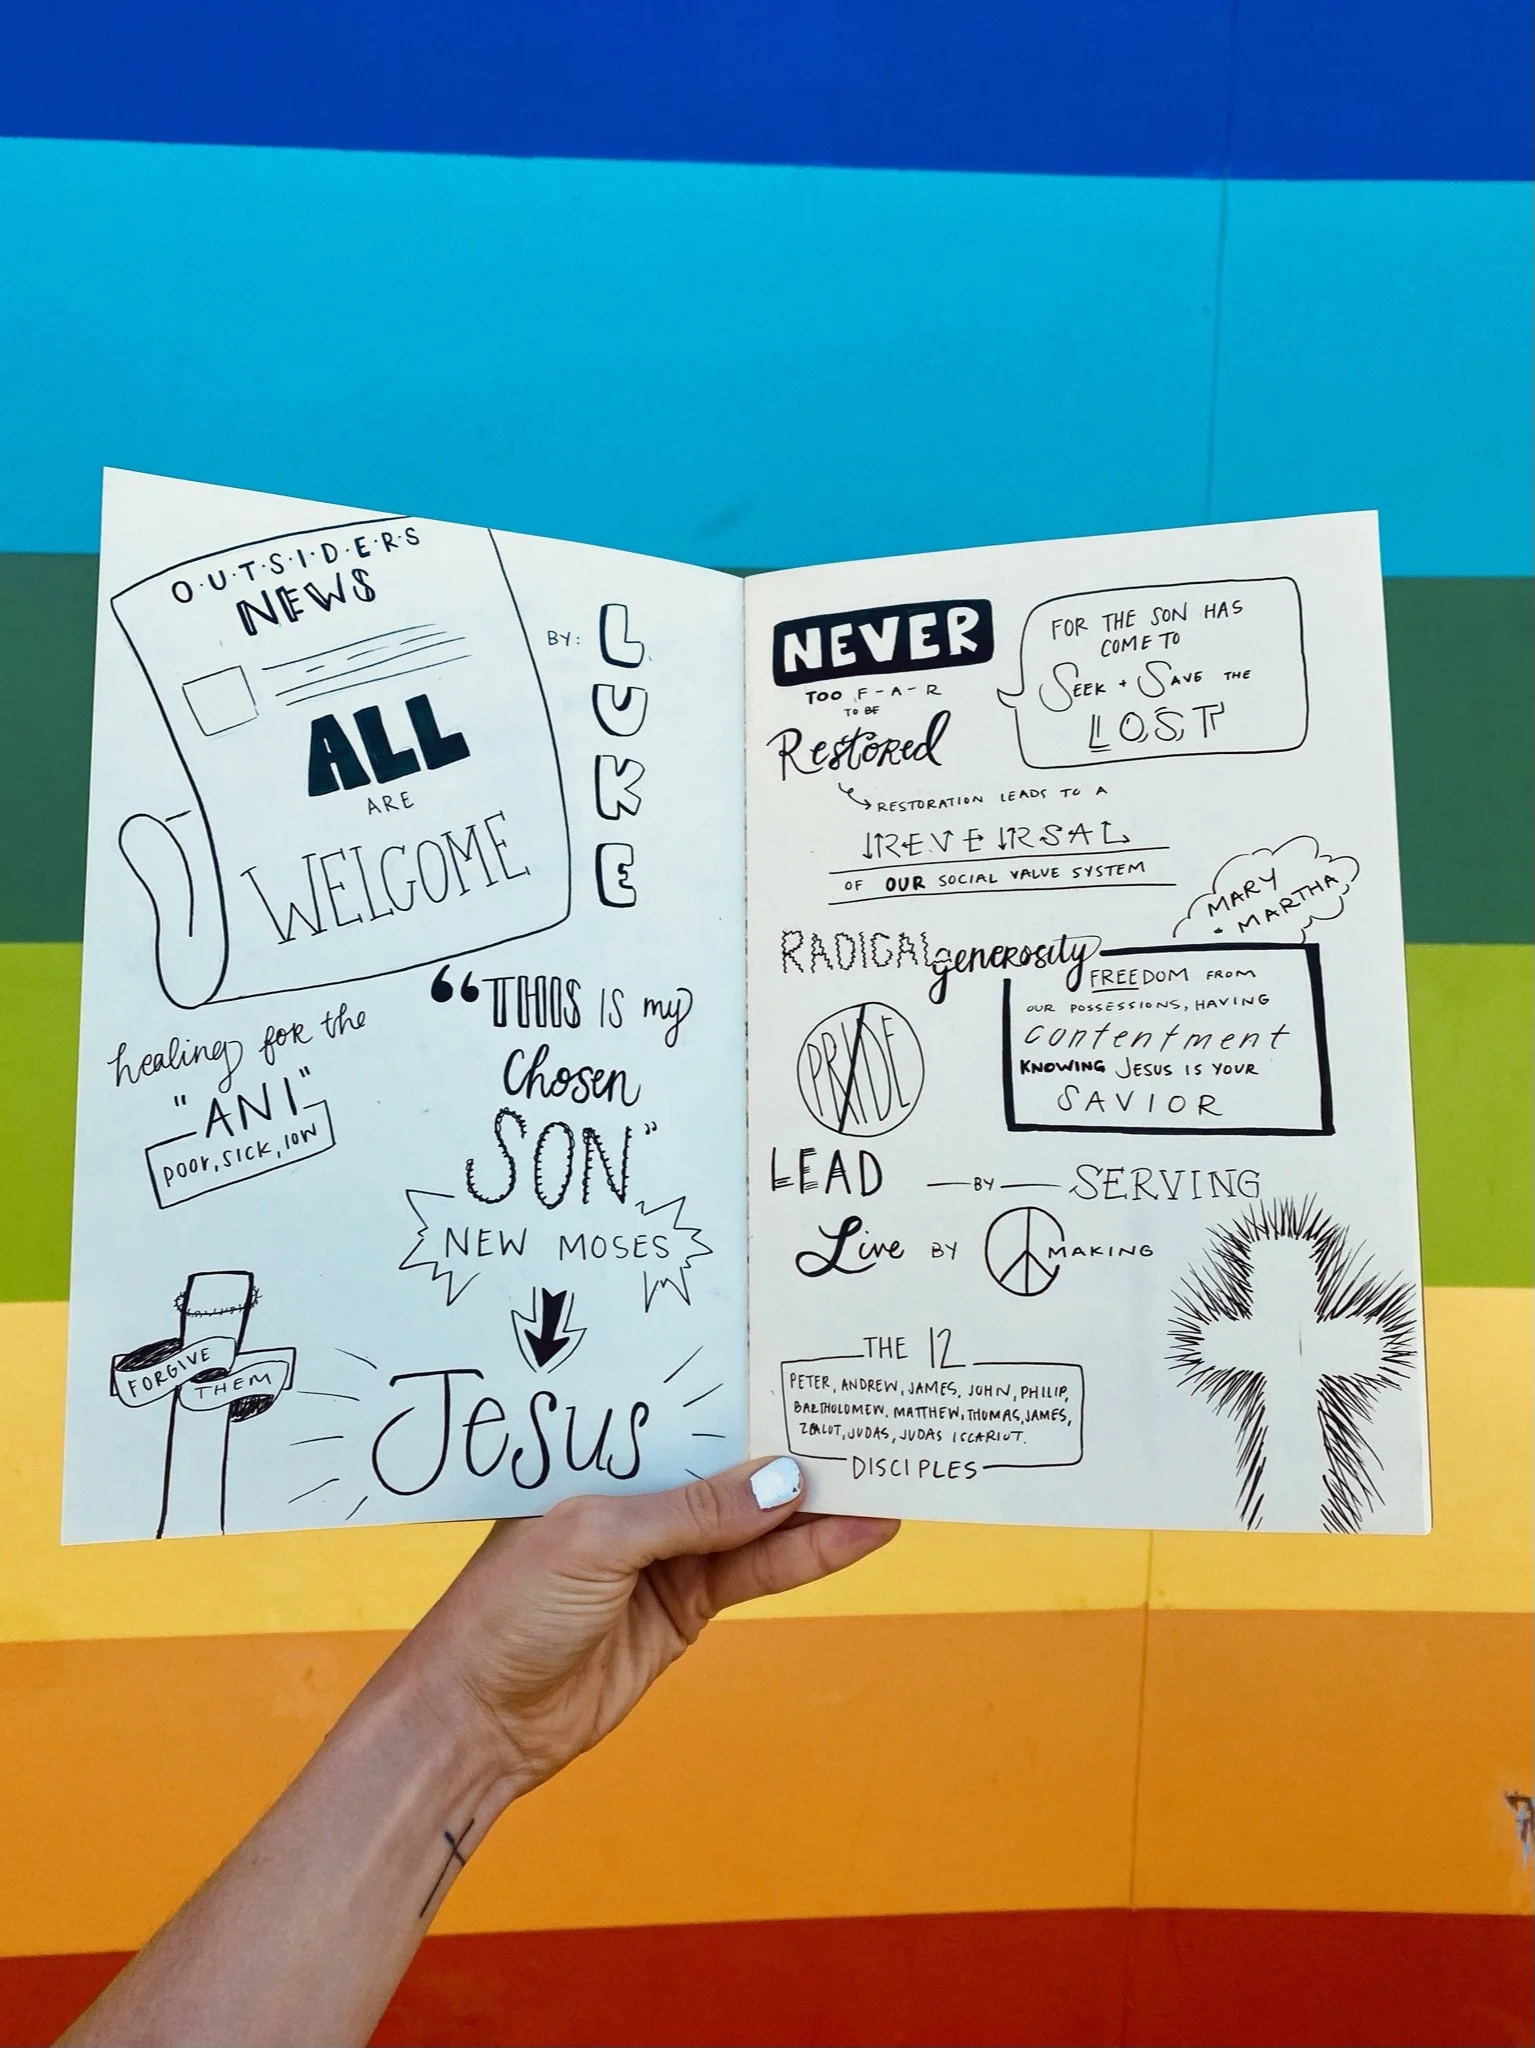 O·U·T·S·I·D·E·R·S
NEWS
ALL
ARE
WELCOME
BY:
LUKE
healing for the
"ANI"
poor, sick, low
"THIS IS my
Chosen
SON"
NEW MOSES
Jesus
FORGIVE
THEM
NEVER
TOO F-A-R
TO BE
Restored
FOR THE SON HAS
COME TO
SEEK + SAVE THE
LOST
RESTORATION LEADS TO A
REVERSAL
OF OUR SOCIAL VALUE SYSTEM
MARY
+ MARTHA
RADICAL generosity
FREEDOM FROM
OUR POSSESSIONS, HAVING
contentment
KNOWING JESUS IS YOUR
SAVIOR
PRIDE
LEAD — BY — SERVING
Live BY MAKING
THE 12
PETER, ANDREW, JAMES, JOHN, PHILIP,
BARTHOLOMEW, MATTHEW, THOMAS, JAMES,
ZEALOT, JUDAS, JUDAS ISCARIOT.
DISCIPLES